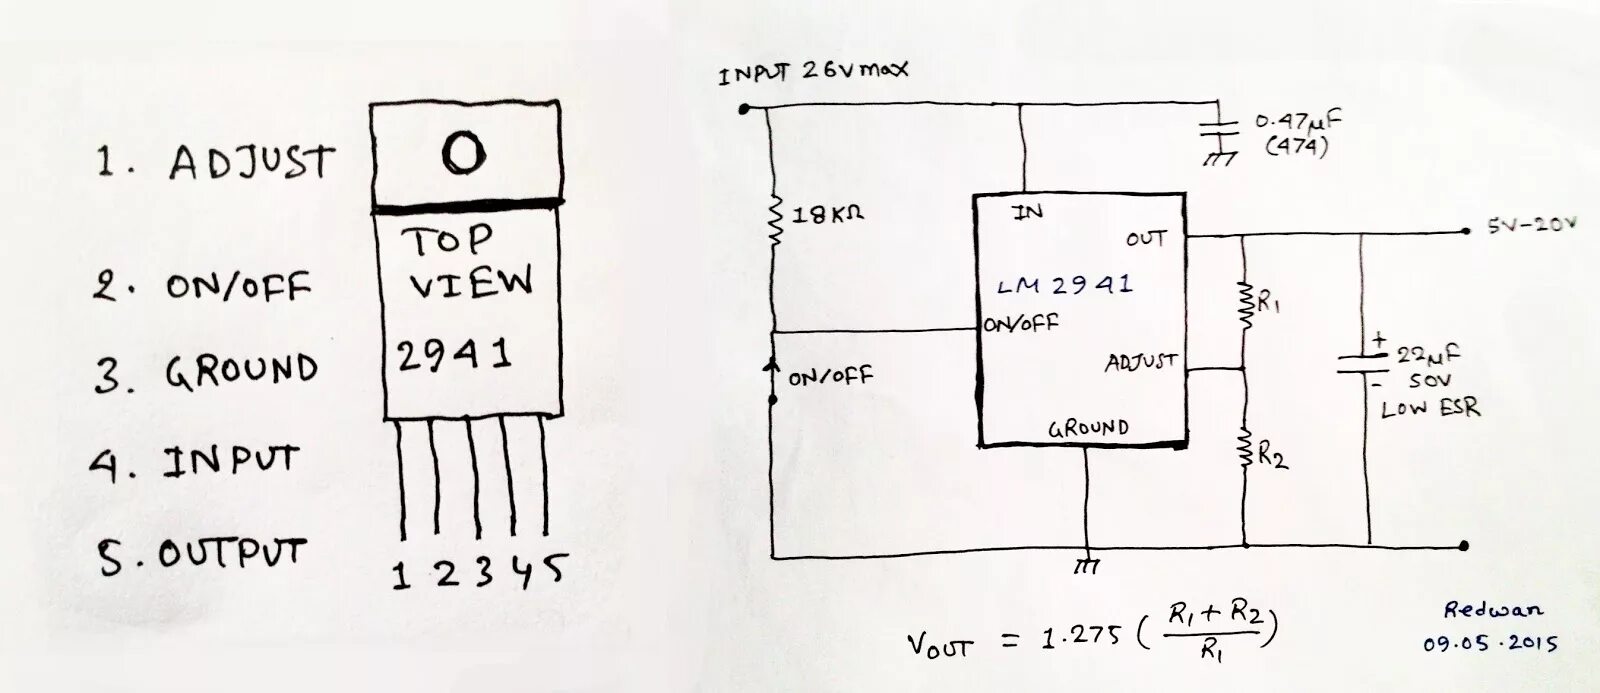 1. ADJUST
2. ON/OFF
3. GROUND
4. INPUT
5. OUTPUT
TOP
VIEW
2941
1 2 3 4 5
INPUT 26V max
0.47µF
(474)
18KΩ
IN
OUT
5V-20V
LM 2941
ON/OFF
ADJUST
GROUND
ON/OFF
R1
R2
+
22µF
-
50V
LOW ESR
VOUT = 1.275 ( R1 + R2 / R1 )
Redwan
09.05.2015